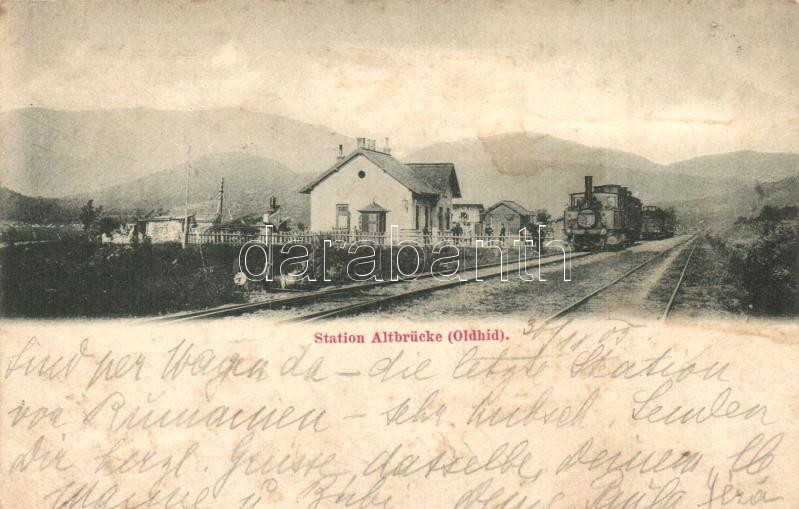 darabanth
Station Altbrücke (Oldhid).
Sind per Wagen da – die letzte Station
vor – sehr hübsch. Senden
Dir herzl. Grüsse dasselbe Deinem lb
Manne u Bubi Deine